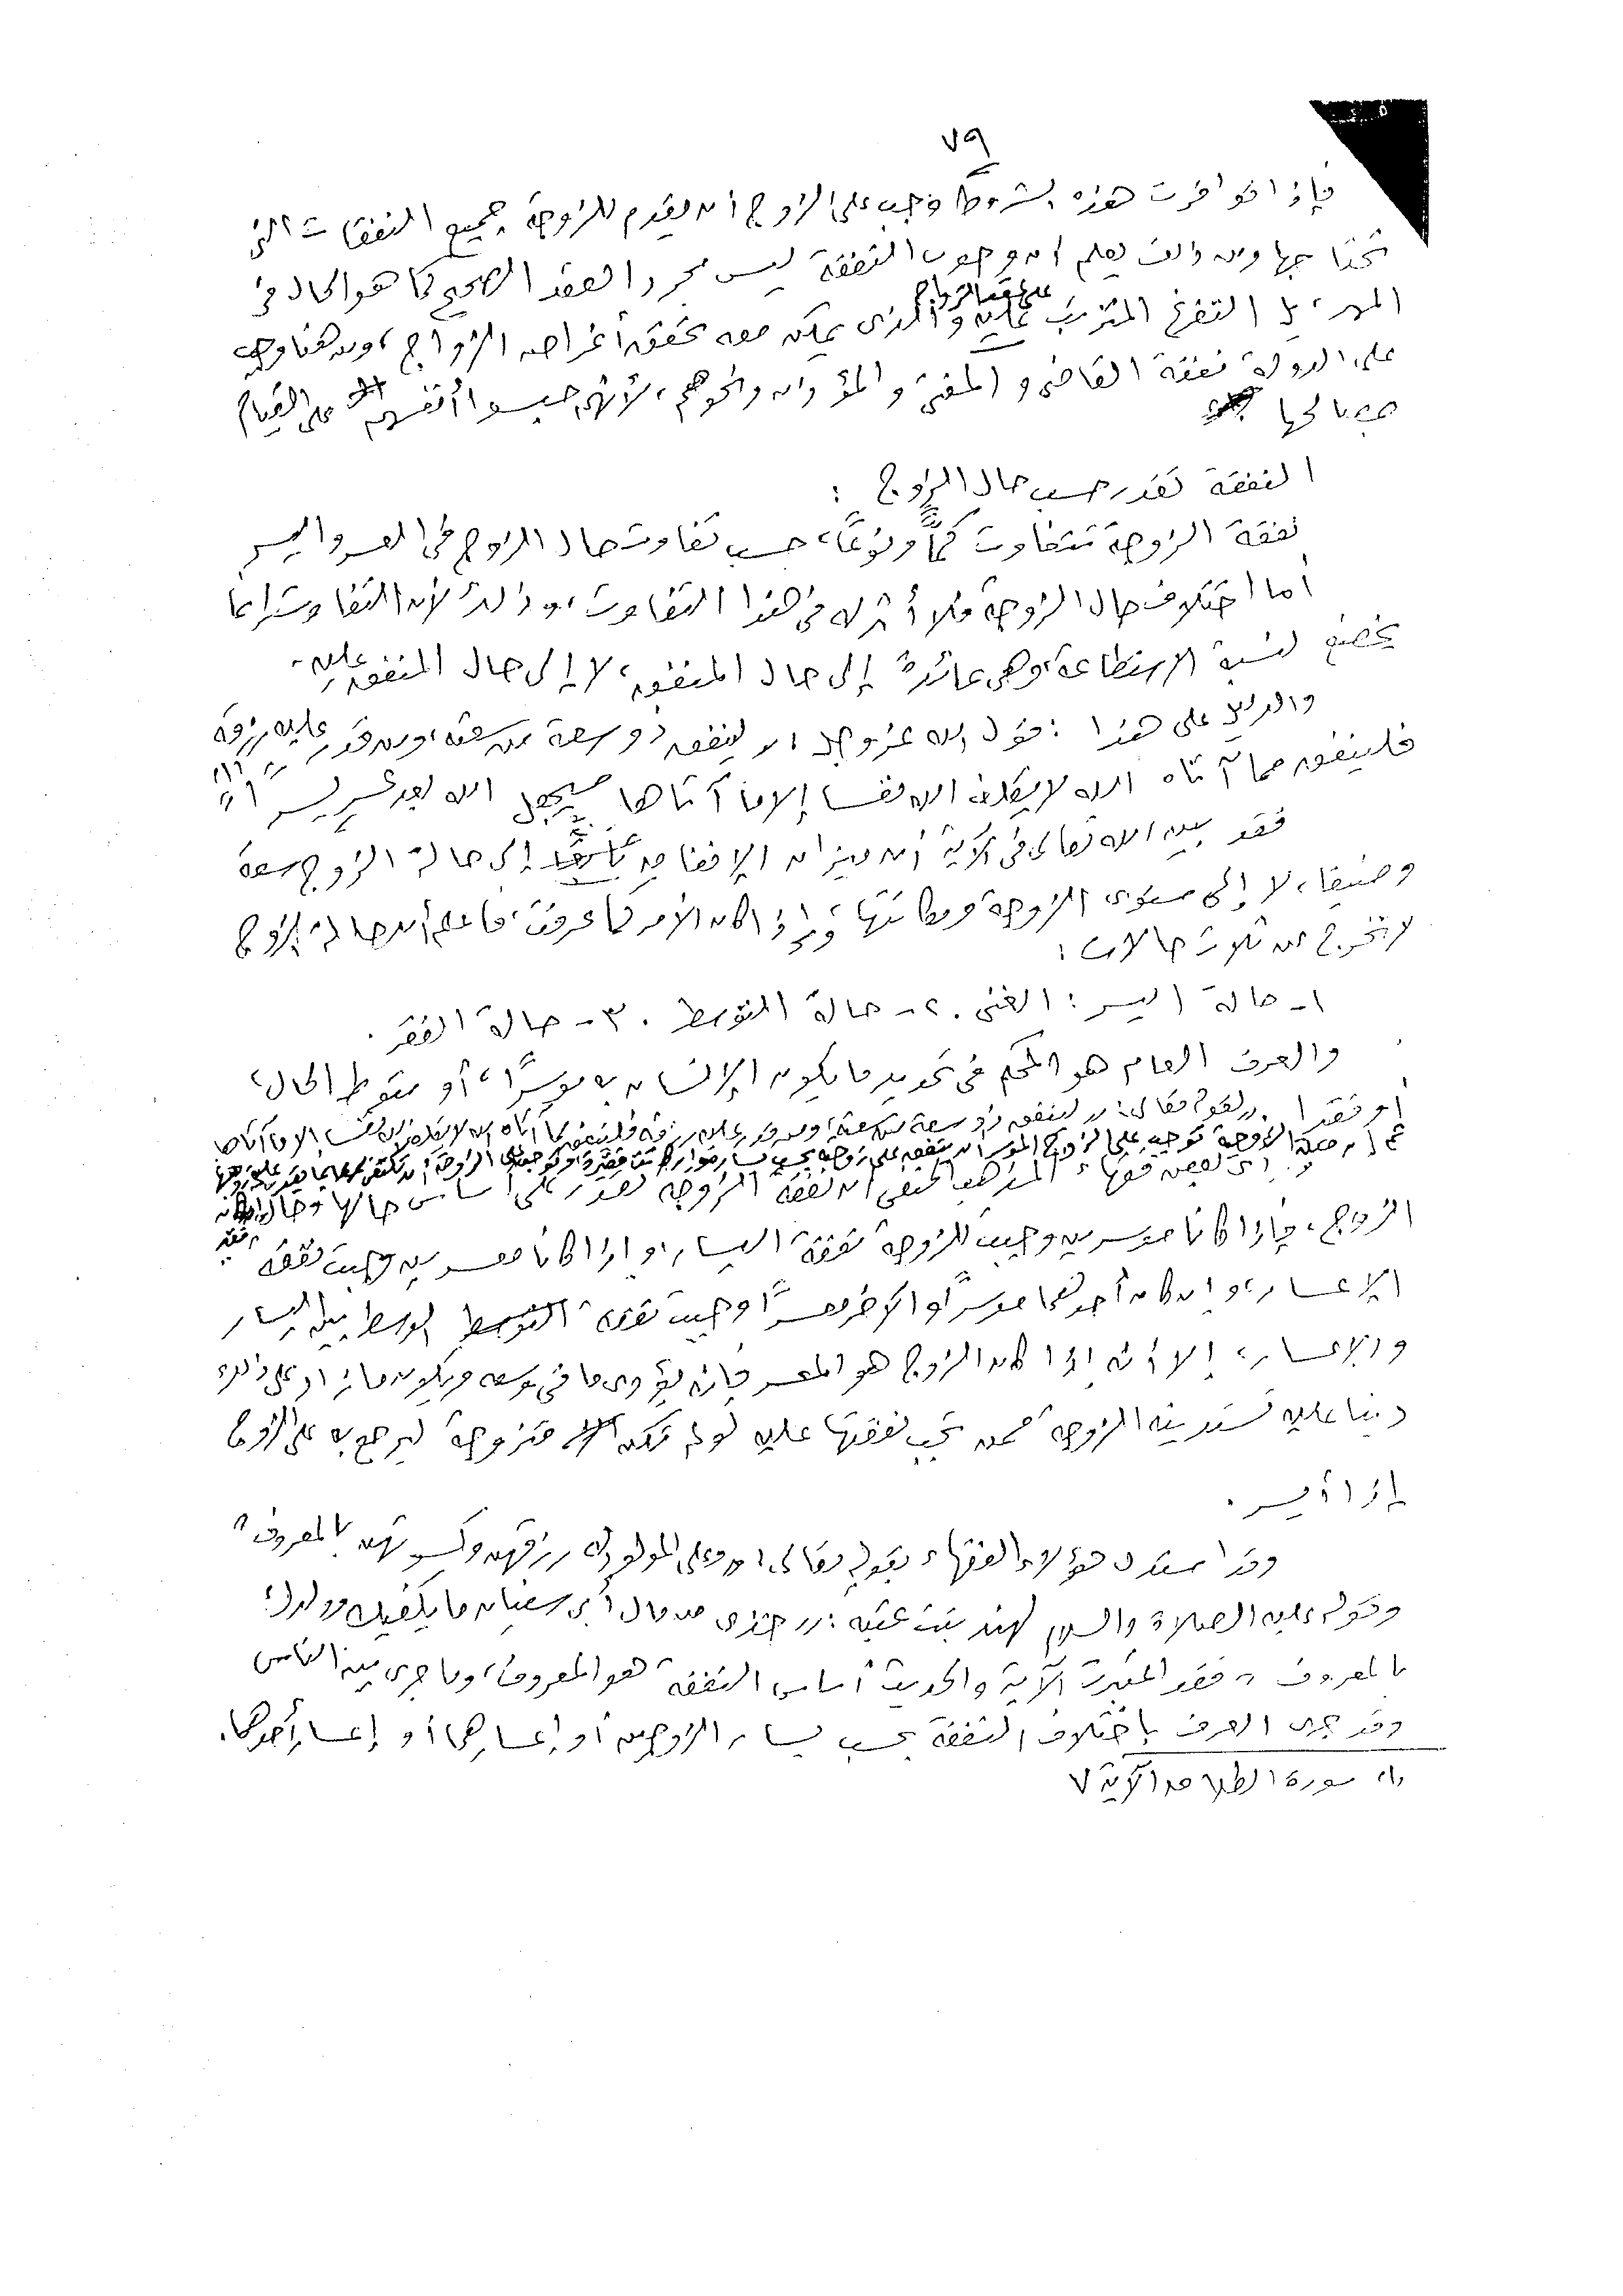 ٧٩
فإذا توافرت هذه الشروط وجب على الزوج أن يقدم للزوجة جميع النفقات التى
تحتاجها ومن ذلك يعلم أن وجوب النفقة ليس مجرد العقد الصحيح كما هو الحال فى
المهر، بل التفرغ المترتب على عقد الزواج والذى يمكن معه تحقق أغراض الزواج، ومن هنا وجب
على الدولة نفقة القاضى والمفتى والمؤذن ونحوهم، لأنهم حبسوا أنفسهم على القيام
بمصالحها
النفقة تقدر حسب حال الزوج :
نفقة الزوجة تتفاوت كمًّا ونوعًا، حسب تفاوت حال الزوج فى العسر واليسر
أما اختلاف حال الزوجة فلا أثر له فى هذا التفاوت، وذلك لأن التفاوت إنما
يخضع لنسبة الاستطاعة، وهى عائدة إلى حال المنفق، لا إلى حال المنفق عليه.
والدليل على هذا : قول الله عز وجل "لينفق ذو سعة من سعته، ومن قدر عليه رزقه
فلينفق مما آتاه الله لا يكلف الله نفسا إلا ما آتاها سيجعل الله بعد عسر يسرا" (١)
فقد بين الله تعالى فى الآية أن ميزان الإنفاق إلى حالة الزوج سعة
وضيقا، لا إلى مستوى الزوجة ومكانتها، وإذا كان الأمر كما عرفت، فاعلم أن حالة الزوج
لا تخرج عن ثلاث حالات :
١- حالة اليسر : الغنى . ٢- حالة التوسط . ٣- حالة الفقر .
والعرف العام هو المحكم فى تحديد ما يكون الإنسان به موسرًا، أو متوسط الحال،
أو فقيرا . لقوله تعالى : "لينفق ذو سعة من سعته، ومن قدر عليه رزقه فلينفق مما آتاه الله لا يكلف الله نفسا إلا ما آتاها
ثم إن صلة الزوجية توجب على الزوج الموسر أن ينفق على زوجته بحسب يساره ولو كانت فقيرة وتوجب على الزوجة أن تكتفى بما يقدر عليه زوجها
ورأى بعض فقهاء المذهب الحنفى أن نفقة الزوجة تقدر على أساس حالها وحال
الزوج، فإذا كانا موسرين وجبت للزوجة نفقة اليسار، وإذا كانا معسرين وجبت نفقة
الإعسار، وإن كان أحدهما موسرًا والآخر معسرًا وجبت نفقة الوسط بين اليسار
والإعسار، إلا أنه إذا كان الزوج هو المعسر فإنه يؤدى ما فى وسعه ويكون ما زاد على ذلك
دينا عليه تستدينه الزوجة ممن تجب نفقتها عليه لو لم تكن متزوجة ليرجع به على الزوج
إذا أيسر .
وقد استدل هؤلاء الفقهاء بقوله تعالى : "وعلى المولود له رزقهن وكسوتهن بالمعروف"
وقوله عليه الصلاة والسلام لهند بنت عتبة : "خذى من مال أبى سفيان ما يكفيك وولدك
بالمعروف" فقد اعتبرت الآية والحديث أساس النفقة هو المعروف، وما جرى بين الناس
وقد جرى العرف باختلاف النفقة بحسب يسار الزوجين أو إعسارهما أو إعسار أحدهما.
(١) سورة الطلاق الآية ٧